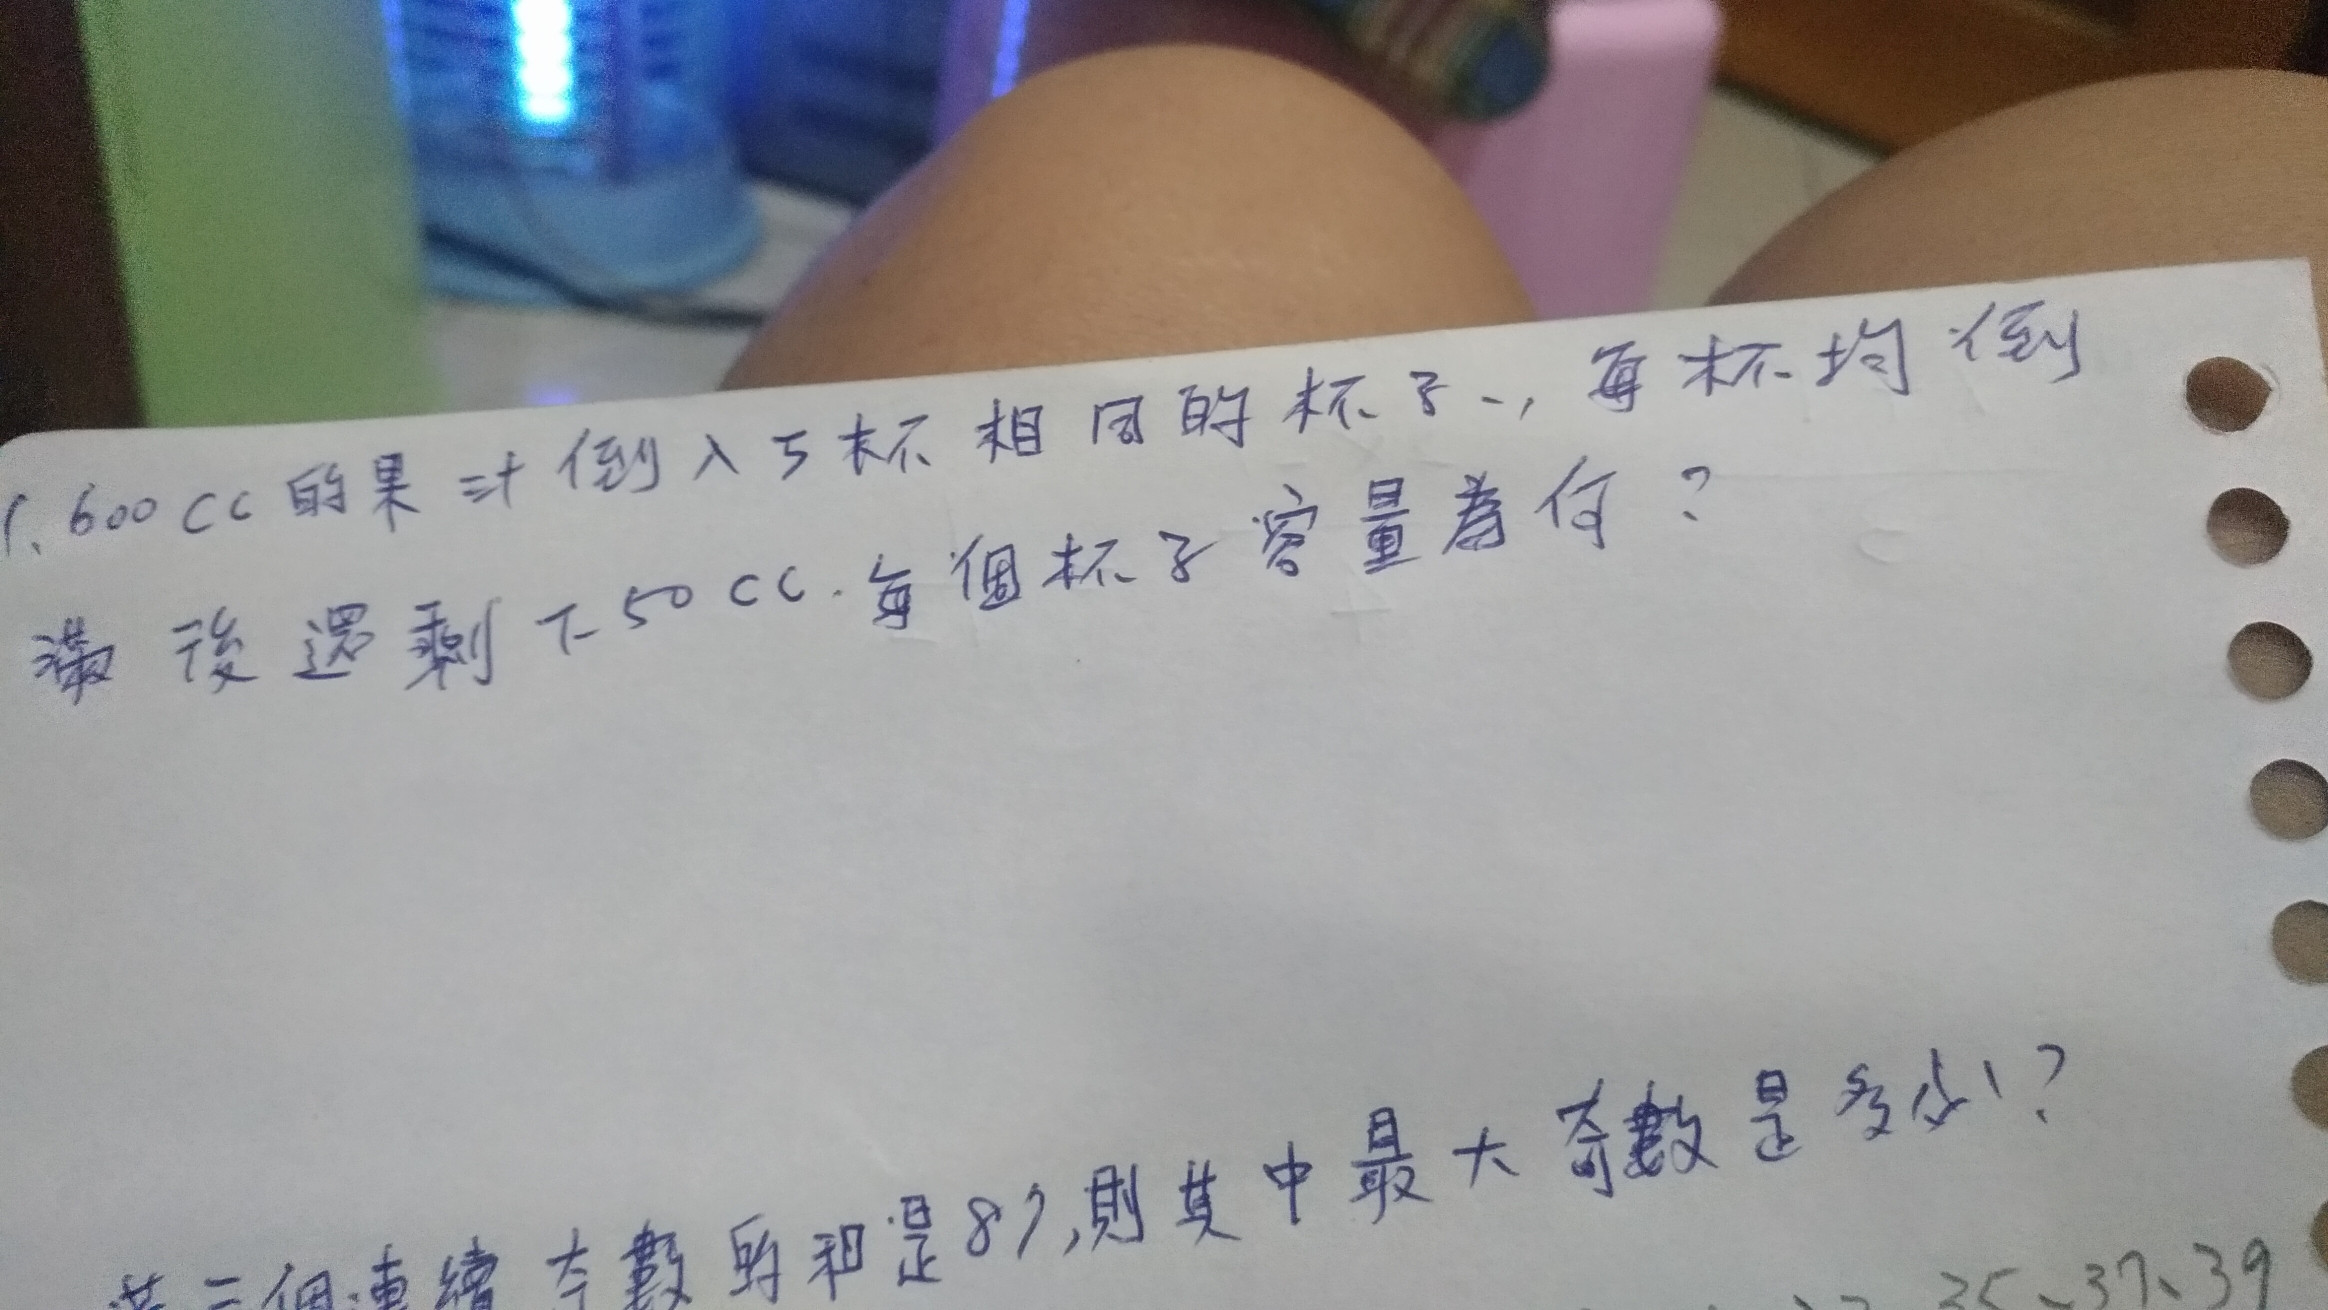 1、600cc的果汁倒入5杯相同的杯子,每杯均倒
滿後還剩下50cc.每個杯子容量為何?
若三個連續奇數的和是87,則其中最大奇數是多少?
35、37、39